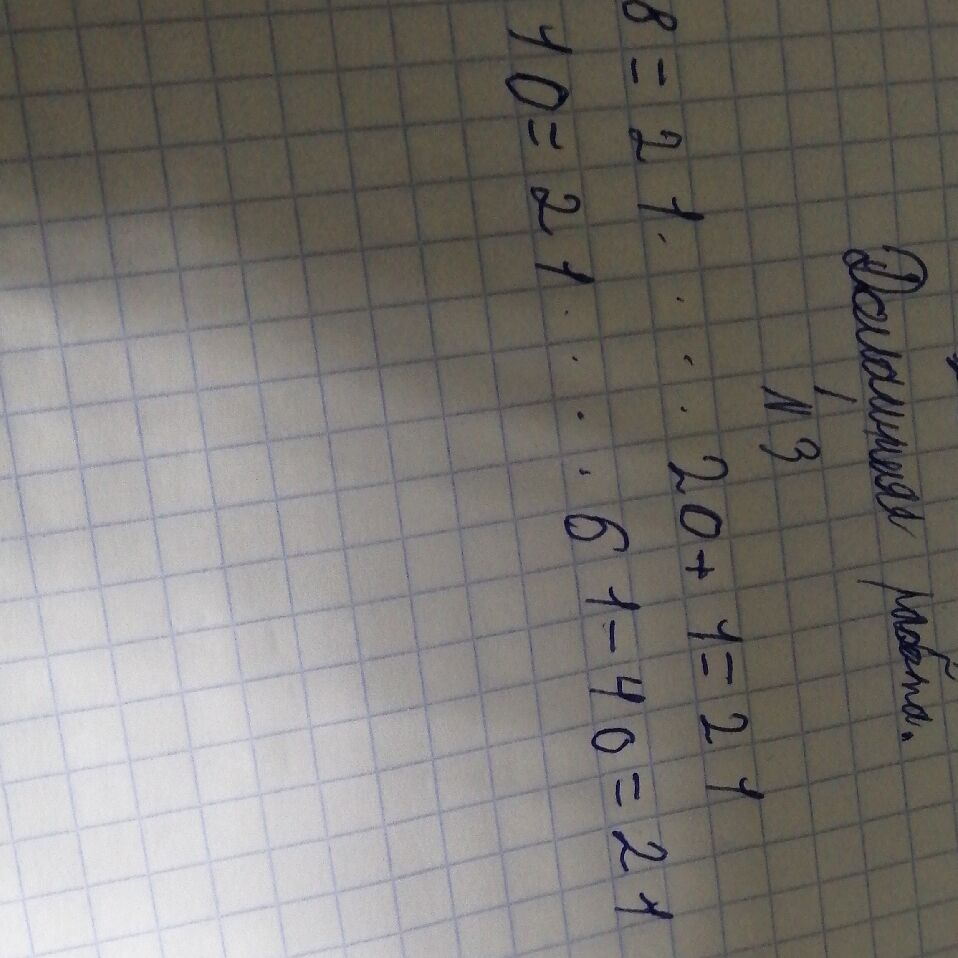 Домашняя работа.
№3
8=21....20+1=21
10=21....61-40=21